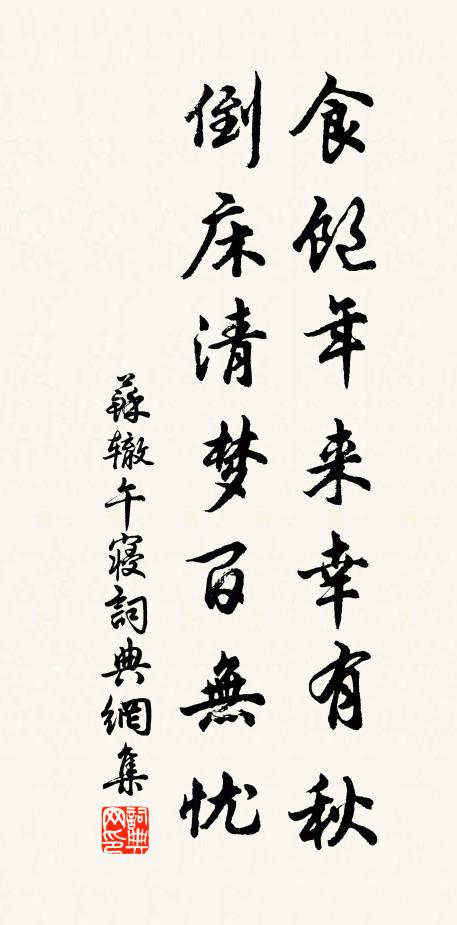 食饱年来幸有秋
倒床清梦百無忧
蘇辙午寝詞典網集
詞典網印